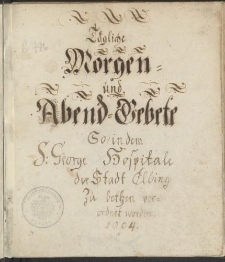 Tägliche
Morgen-
und
Abend-Gebete
So in dem
St: George Hospitale
der Stadt Elbing
Zu bethen ver-
ordnet worden.